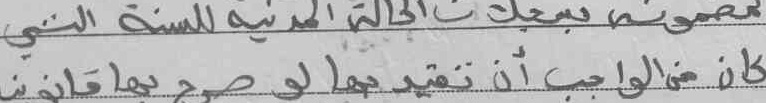 مضمونه بسجلات الحالة المدنية للسنة التي
كان من الواجب أن تقيد بها لو صرح بها قانونا